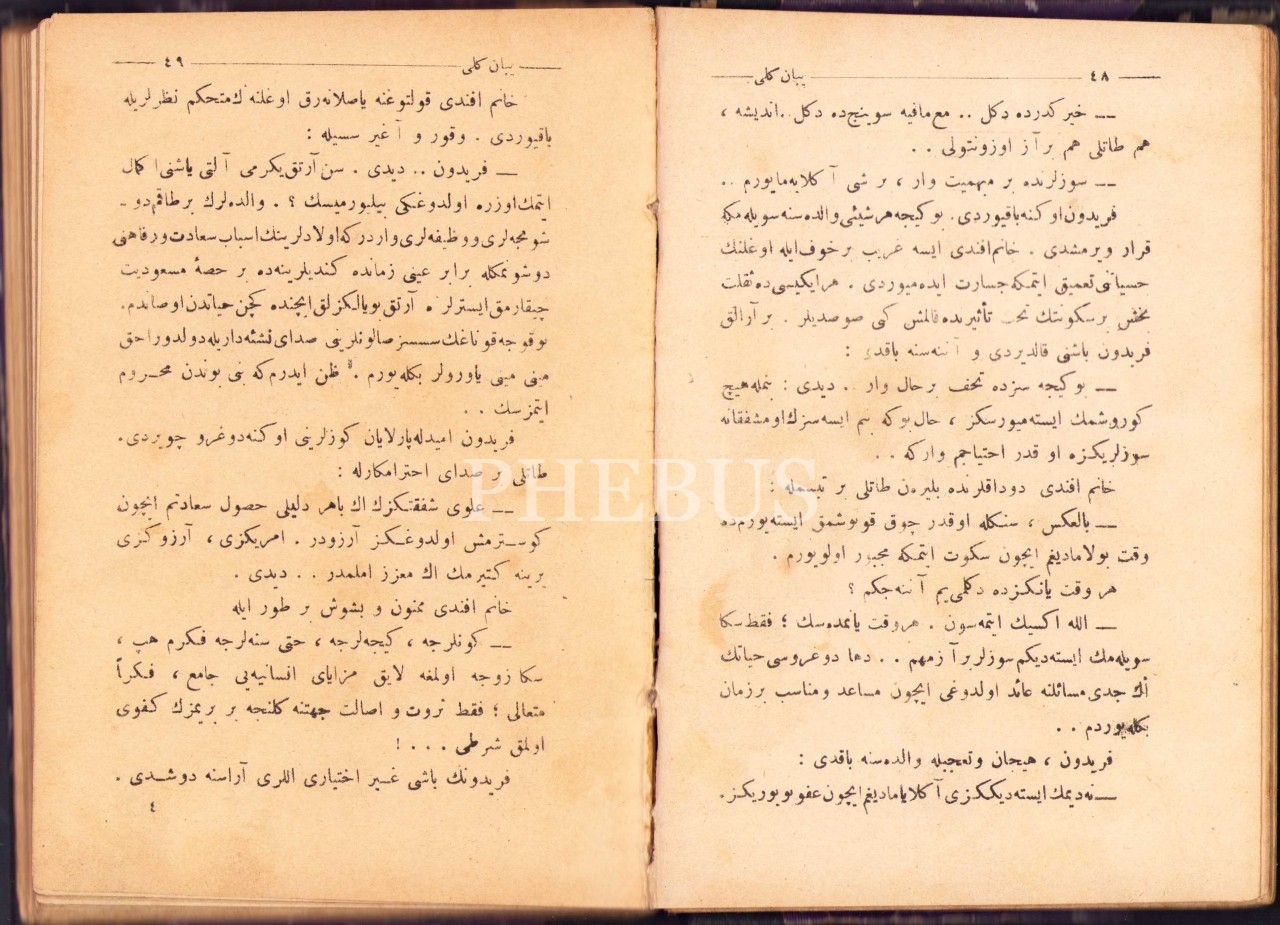 ٤٨ يبان كلى
— خير كدرده دكل .. مع مافيه سوينج‌ده دكل .. انديشه ،
هم طاتلى هم بر آز اوزونتولى . .
— سوزلرنده بر مبهميت وار ، بر شى آكلايه‌مايورم ..
فريدون اوكنه باقيوردى. بو كيجه هر شيئى والده‌سنه سويله‌مكه
قرار ويرمشدى . خانم افندى ايسه غريب بر خوف ايله اوغلنك
حسياتنى تعميق ايتمكه جسارت ايده‌ميوردى . هر ايكيسى ده ثقلت
بخش بر سكونتك تحت تأثيرنده قالمش كى صوصديلر . بر آرالق
فريدون باشنى قالديردى و آننه‌سنه باقدى :
— بو كيجه سزده تحف بر حال وار .. ديدى : بنمله هيچ
كوروشمك ايسته‌ميورسكز ، حال بوكه بنم ايسه سزك او مشفقانه
سوزلريكزه او قدر احتياجم واركه . .
خانم افندى دوداقلرنده بليره‌ن طاتلى بر تبسمله :
— بالعكس ، سنكله اوقدر چوق قونوشمق ايسته‌يورم‌ده
وقت بولاماديغم ايچون سكوت ايتمكه مجبور اولويورم .
هر وقت يانكزده دكلمى‌يم آننه‌جكم ؟
— الله اكسيك ايتمه‌سون . هر وقت يانمده‌سك ؛ فقط سكا
سويله‌مك ايسته‌ديكم سوزلر بر آز مهم . . دها دوغروسى حياتك
اك جدى مسائلنه عائد اولدوغى ايچون مساعد و مناسب بر زمان
بكله‌يوردم . .
فريدون ، هيجان وتعجبله والده‌سنه باقدى :
— نه ديمك ايسته‌ديككزى آكلاياماديغم ايچون عفو بويوريكز.
يبان كلى ٤٩
خانم افندى قولتوغنه ياصلانه‌رق اوغلنه ك متحكم نظرلريله
باقيوردى . وقور و آغير سسيله :
— فريدون .. ديدى . سن آرتق يكرمى آلتى ياشنى اكمال
ايتمك اوزره اولدوغكى بيليورميسك ؟ . والده‌لرك بر طاقم دو -
شونجه‌لرى و وظيفه‌لرى واردركه اولادلرينك اسباب سعادت ورفاهنى
دوشونمكله برابر عينى زمانده كنديلرينه‌ده بر حصهٔ مسعوديت
چيقارمق ايسترلر . آرتق بو يالكزلق ايچنده كچن حياتدن اوصاندم.
بو قوجه قوناغك سسسز صالونلرينى صداى نشئه‌داريله دولدوراحق
مينى مينى ياورولر بكله‌يورم . ظن ايدرم كه بنى بوندن محروم
ايتمزسك . .
فريدون اميدله پارلايان كوزلرينى اوكنه دوغرو چويردى.
طاتلى بر صداى احترامكارله :
— علوى شفقتكزك اك باهر دليلى حصول سعادتم ايچون
كوسترمش اولدوغكز آرزودر . امريكزى ، آرزوكزى
يرينه كتيرمك اك معزز املمدر . . ديدى .
خانم افندى ممنون و بشوش بر طور ايله
— كونلرجه ، كيجه‌لرجه ، حتى سنه‌لرجه فكرم هپ ،
سكا زوجه اولمغه لايق مزاياى انسانيه‌يى جامع ، فكراً
متعالى ؛ فقط ثروت و اصالت جهتنه كلنجه بر بريمزك كفوى
اولمق شرطى . . . !
فريدونك باشى غير اختيارى اللرى آراسنه دوشدى .
٤
PHEBUS